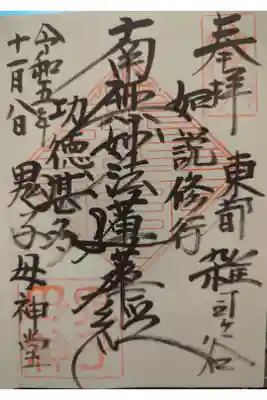 奉拝
東都 雑司ヶ谷
如説修行
南無妙法蓮華経
功徳甚多
鬼子母神堂
令和五年
十一月八日